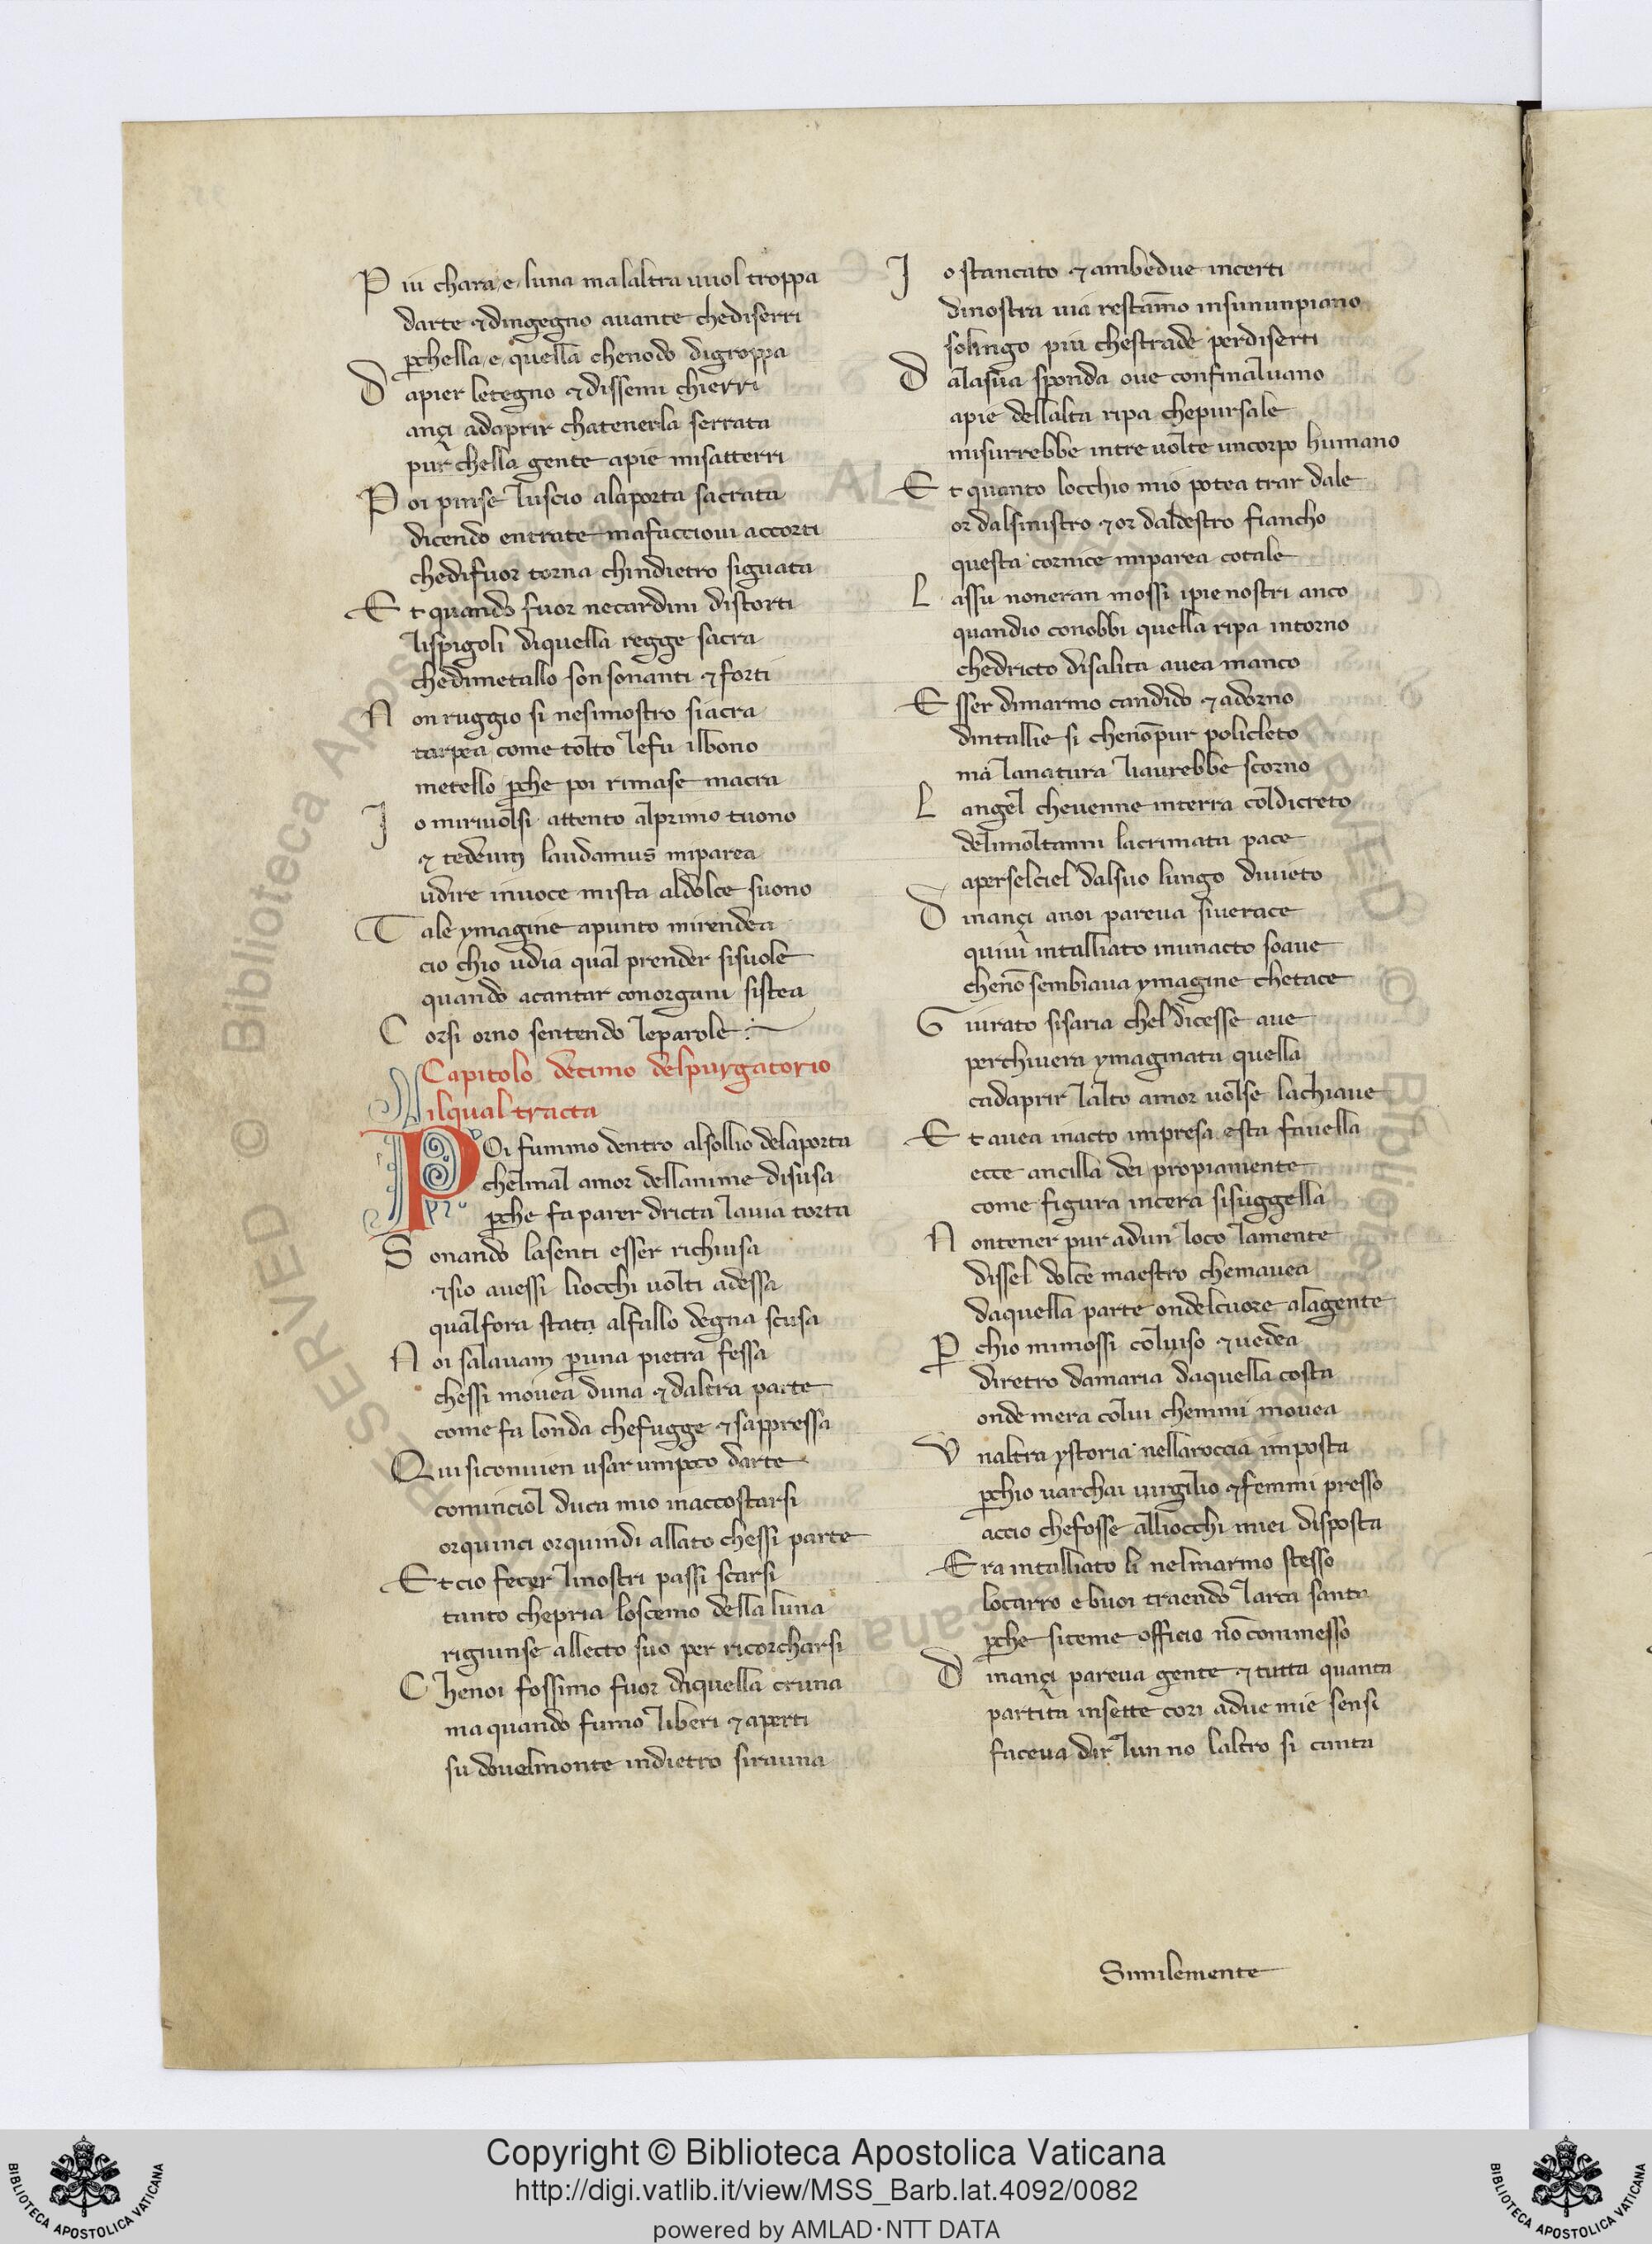 P iu chara e luna malaltra vuol troppa
darte ⁊ dingegno auante chediserri
ꝑchella e quella chenodo digroppa
D apier letegno ⁊ dissemi chierri
ançi adaprir chatenerla serrata
pur chella gente apie misatterri
P oi pinse luscio alaporta sacrata
dicendo entrate mafaccioui accorti
chedifuor torna chindietro siguata
E t quando fuor necardini distorti
lispigoli diquella regge sacra
chedimetallo son sonanti ⁊ forti
N on ruggio si nesimostro siacra
tarpea come tolto lefu ilbono
metello ꝑche poi rimase macra
I o miriuolsi attento alprimo tuono
⁊ tedeum laudamus miparea
udire inuoce mista aldolce suono
T ale ymagine apunto mirendea
cio chio udia qual prender sisuole
quando acantar conorgani sistea
C orsi orno sentendo leparole
Capitolo decimo delpurgatorio
ilqual tracta
P Oi fummo dentro alsollio delaporta
chelmal amor dellanime disusa
ꝑche fa parer dricta lauia torta
S onando lasenti esser richiusa
⁊sio auessi liocchi uolti adessa
qualfora stata alfallo degna scusa
N oi salauam ꝑuna pietra fessa
chessi mouea duna ⁊ daltra parte
come fa londa chefugge ⁊ sappressa
Q ui siconuien usar umpoco darte
cominciol duca mio inaccostarsi
orquinci orquindi allato chessi parte
E t cio fecer linostri passi scarsi
tanto chepria loscemo della luna
rigiunse allecto suo per ricorcharsi
C henoi fossimo fuor diquella cruna
ma quando fumo liberi ⁊ aperti
su douelmonte indietro sirauna
I o stancato ⁊ ambedue incerti
dinostra uia restam̄o insununpiano
solingo piu chestrade perdiserti
D alasua sponda oue confinaluano
apie dellalta ripa chepursale
misurrebbe intre uolte uncorpo humano
E t quanto locchio mio potea trar dale
or dalsinistro ⁊ or daldestro fiancho
questa cornice miparea cotale
L assu noneran mossi ipie nostri anco
quandio conobbi quella ripa intorno
chedricto disalita auea manco
E sser dimarmo candido ⁊ adorno
dintallie si chenōpur policleto
ma lanatura liaurebbe scorno
L angel cheuenne interra coldicreto
delmoltanni lacrimata pace
aperselciel dalsuo lungo diuieto
D inançi anoi pareua siuerace
quiui intalliato inunacto soaue
chenō sembiaua ymagine chetace
G iurato sisaria chel dicesse aue
perchiuera ymaginata quella
cadaprir lalto amor uolse lachiaue
E t auea inacto impresa esta fauella
ecce ancilla dei propiamente
come figura incera sisuggella
N ontener pur adun loco lamente
dissel dolce maestro chemauea
daquella parte ondelcuore alagente
Ꝑ chio mimossi coluiso ⁊ uedea
diretro damaria daquella costa
onde mera colui chemmi mouea
V naltra ystoria nellaroccia imposta
ꝑchio uarchai uirgilio ⁊ femmi presso
accio chefosse alliocchi miei disposta
E ra intalliato li nelmarmo stesso
locarro e buoi traendo larca santa
ꝑche siteme officio nō commesso
D inançi pareua gente ⁊ tutta quanta
partita insette cori adue mie sensi
faceua dir lun no laltro si canta
Similemente
Copyright © Biblioteca Apostolica Vaticana
http://digi.vatlib.it/view/MSS_Barb.lat.4092/0082
powered by AMLAD·NTT DATA
BIBLIOTECA APOSTOLICA VATICANA
BIBLIOTECA APOSTOLICA VATICANA